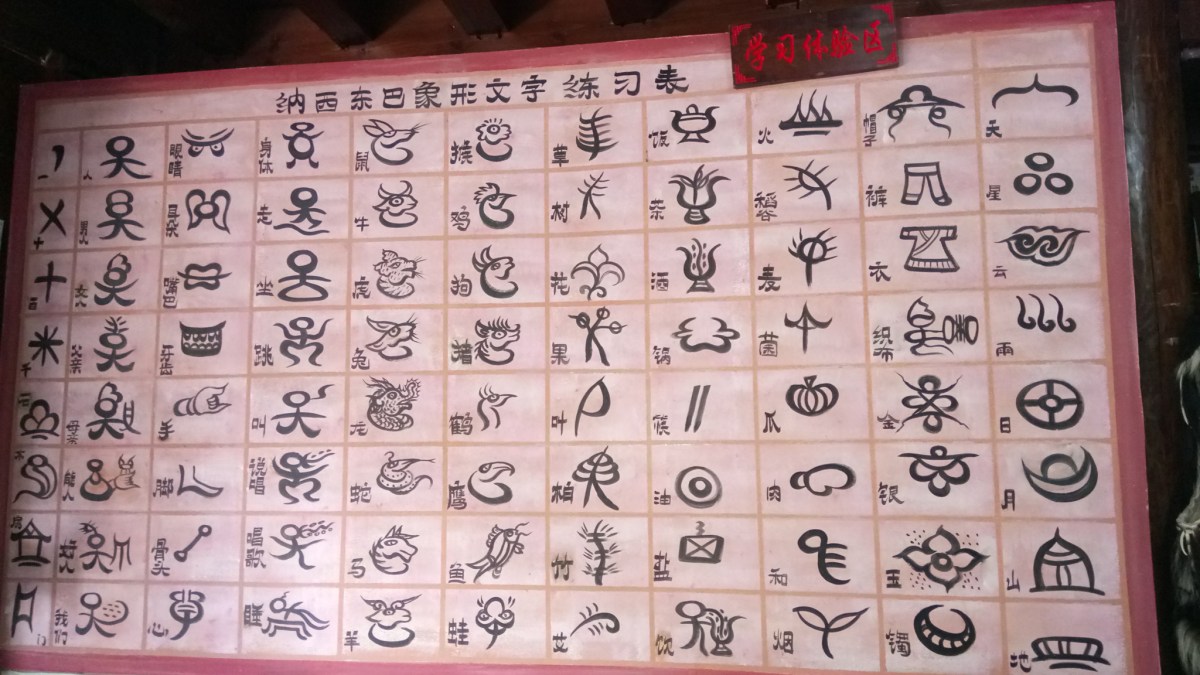 学习体验区
纳西东巴象形文字练习表
一 人 眼睛 身体 鼠 猴 草 饭 火 帽子 天
十 男人 耳朵 走 牛 鸡 树 茶 稻谷 裤 星
百 女人 嘴巴 坐 虎 狗 花 酒 麦 衣 云
千 父亲 牙齿 跳 兔 猪 果 锅 菌 织布 雨
母亲 手 叫 龙 鹤 叶 筷 瓜 金 日
人 脚 说话 蛇 鹰 柏 油 肉 银 月
房 人 骨头 唱歌 马 鱼 竹 盐 和 玉 山
门 我们 心 睡 羊 蛙 艾 饮 烟 镯 池